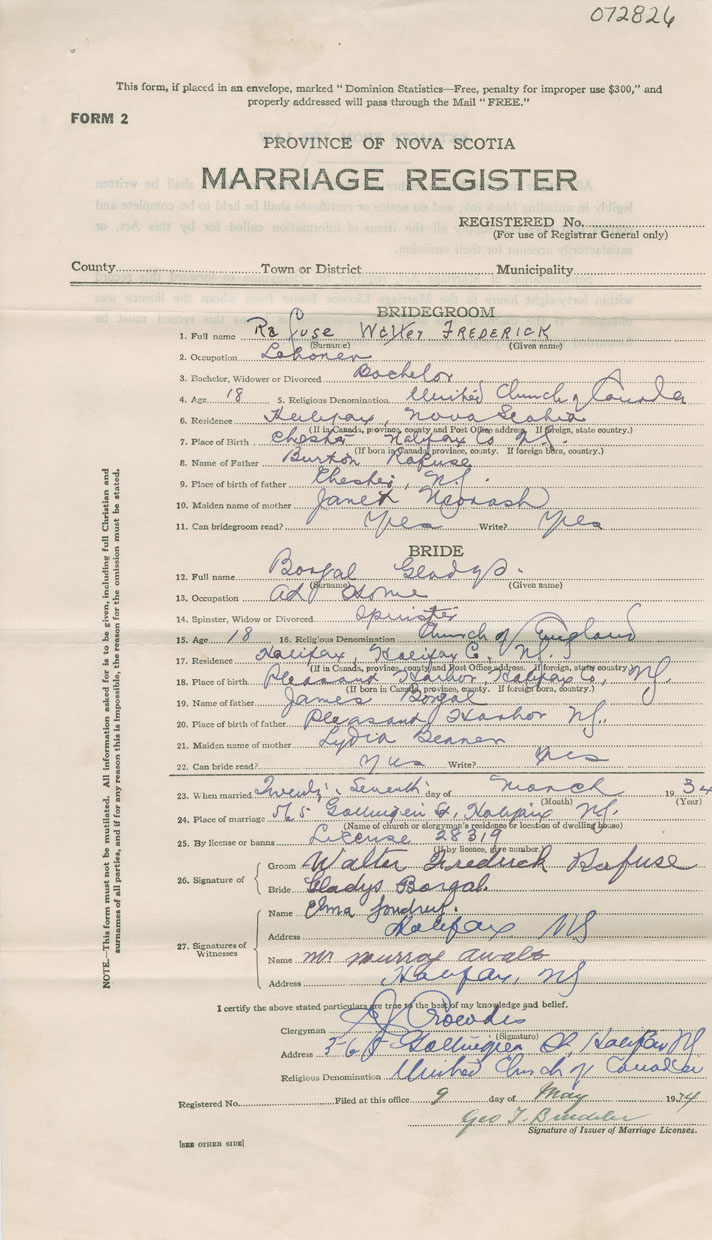 072826
This form, if placed in an envelope, marked "Dominion Statistics—Free, penalty for improper use $300," and
properly addressed will pass through the Mail "FREE."
FORM 2
PROVINCE OF NOVA SCOTIA
MARRIAGE REGISTER
REGISTERED No.
(For use of Registrar General only)
County Town or District Municipality
BRIDEGROOM
1. Full name Rafuse Walter FREDERICK
(Surname) (Given name)
2. Occupation
3. Bachelor, Widower or Divorced Bachelor
4. Age 18 5. Religious Denomination United Church of Canada
6. Residence Halifax, Nova Scotia
(If in Canada, province, county and Post Office address. If foreign, state country.)
7. Place of Birth Chester Halifax Co N.S.
(If born in Canada, province, county. If foreign born, country.)
8. Name of Father Burton Rafuse
9. Place of birth of father Chester, N.S.
10. Maiden name of mother Janet
11. Can bridegroom read? Yes Write? Yes
BRIDE
12. Full name Borgal Gladys.
(Surname) (Given name)
13. Occupation At Home
14. Spinster, Widow or Divorced Spinster
15. Age 18 16. Religious Denomination Church of England
17. Residence Halifax, Halifax Co. N.S.
(If in Canada, province, county and Post Office address. If foreign, state country.)
18. Place of birth Pleasant Harbor, Halifax Co., N.S.
(If born in Canada, province, county. If foreign born, country.)
19. Name of father James Borgal
20. Place of birth of father Pleasant Harbor N.S.
21. Maiden name of mother Lydia
22. Can bride read? Yes Write? Yes
23. When married Twenty Seventh day of March 1934
(Month) (Year)
24. Place of marriage Gottingen St, Halifax N.S.
(Name of church or clergyman's residence or location of dwelling house)
25. By license or banns License 28319
(If by licence, give number.)
26. Signature of
Groom Walter Fredrick Rafuse
Bride Gladys Borgal.
27. Signatures of Witnesses
Name Elma
Address Halifax NS
Name Mr Murray Awalt
Address Halifax, NS
I certify the above stated particulars are true to the best of my knowledge and belief.
Clergyman Crowdis
(Signature)
Address Gottingen St, Halifax NS
Religious Denomination United Church of Canada
Registered No. Filed at this office 9 day of May 1934
Geo T.
Signature of Issuer of Marriage Licenses.
[SEE OTHER SIDE]
NOTE.—This form must not be mutilated. All information asked for is to be given, including full Christian and
surnames of all parties, and if for any reason this is impossible, the reason for the omission must be stated.